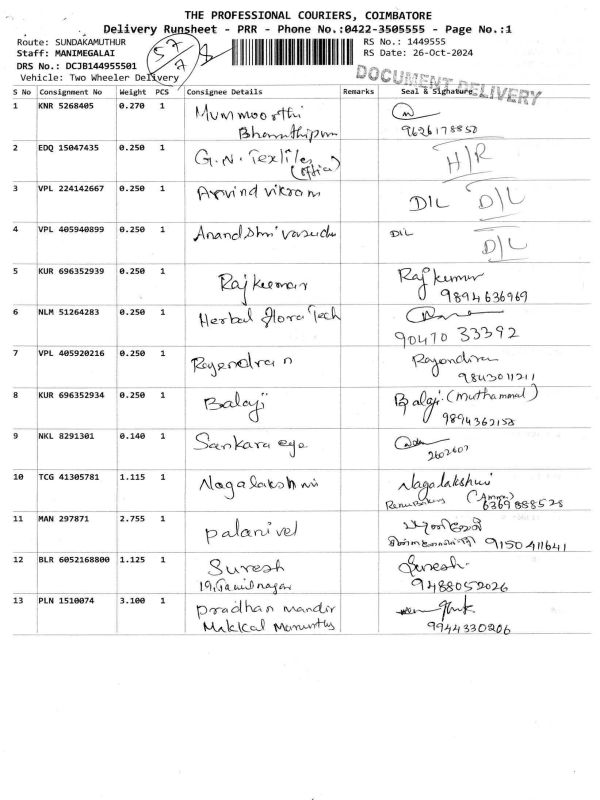 THE PROFESSIONAL COURIERS, COIMBATORE
Delivery Runsheet - PRR - Phone No.:0422-3505555 - Page No.:1
Route: SUNDAKAMUTHUR RS No.: 1449555
Staff: MANIMEGALAI RS Date: 26-Oct-2024
DRS No.: DCJB144955501
Vehicle: Two Wheeler Delivery
57/7
DOCUMENT DELIVERY
S No Consignment No Weight PCS Consignee Details Remarks Seal & Signature
1 KNR 5268405 0.270 1 Mummoorthi
Bharathipuram 9626178850
2 EDQ 15047435 0.250 1 G.N. Textiles H/R
(office)
3 VPL 224142667 0.250 1 Arvind vikram D/L D/L
4 VPL 405940899 0.250 1 Anand Shri D/L
D/L
5 KUR 696352939 0.250 1 Rajkumar Rajkumar
9894636969
6 NLM 51264283 0.250 1 Herbal flora Tech
90470 33392
7 VPL 405920216 0.250 1 Rajendran
9843011211
8 KUR 696352934 0.250 1 Balaji Balaji (Muthammal)
9894362158
9 NKL 8291301 0.140 1 Sankara eye
2602602
10 TCG 41305781 1.115 1 Nagalakshmi Nagalakshmi
(Amma) 6369888528
11 MAN 297871 2.755 1 Palanivel
9150411641
12 BLR 6052168800 1.125 1 Suresh Suresh
19, Tamilnagar 9488052026
13 PLN 1510074 3.100 1 Pradhan mandir
Makkal 9944330206